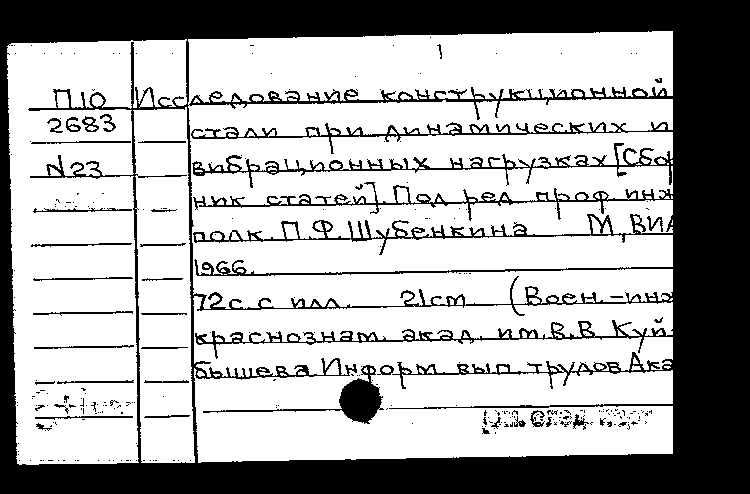 П.10 Исследование конструкционной
2683 стали при динамических и
N23 вибрационных нагрузках [Сбор
ник статей]. Под ред проф инж
полк. П.Ф.Шубенкина М, ВИА
1966.
72с. с илл. 21cm (Воен.-инж
краснознам. акад. им. В.В. Куй-
бышева Информ. вып. трудов Ака
см. след. карт